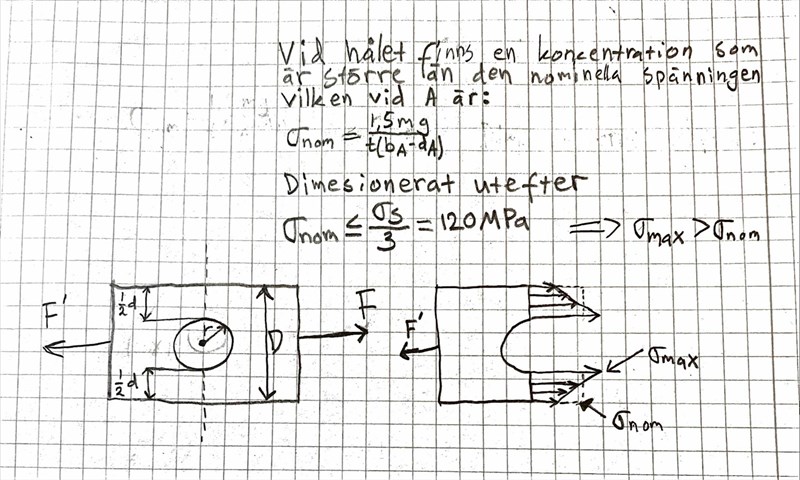 Vid hålet finns en koncentration som
är större än den nominella spänningen
vilken vid A är:
σnom = 1,5mg / t(bA-dA)
Dimesionerat utefter
σnom ≤ σs/3 = 120MPa ⟹ σmax > σnom
½d
F'
r
D
F
½d
F'
σmax
σnom